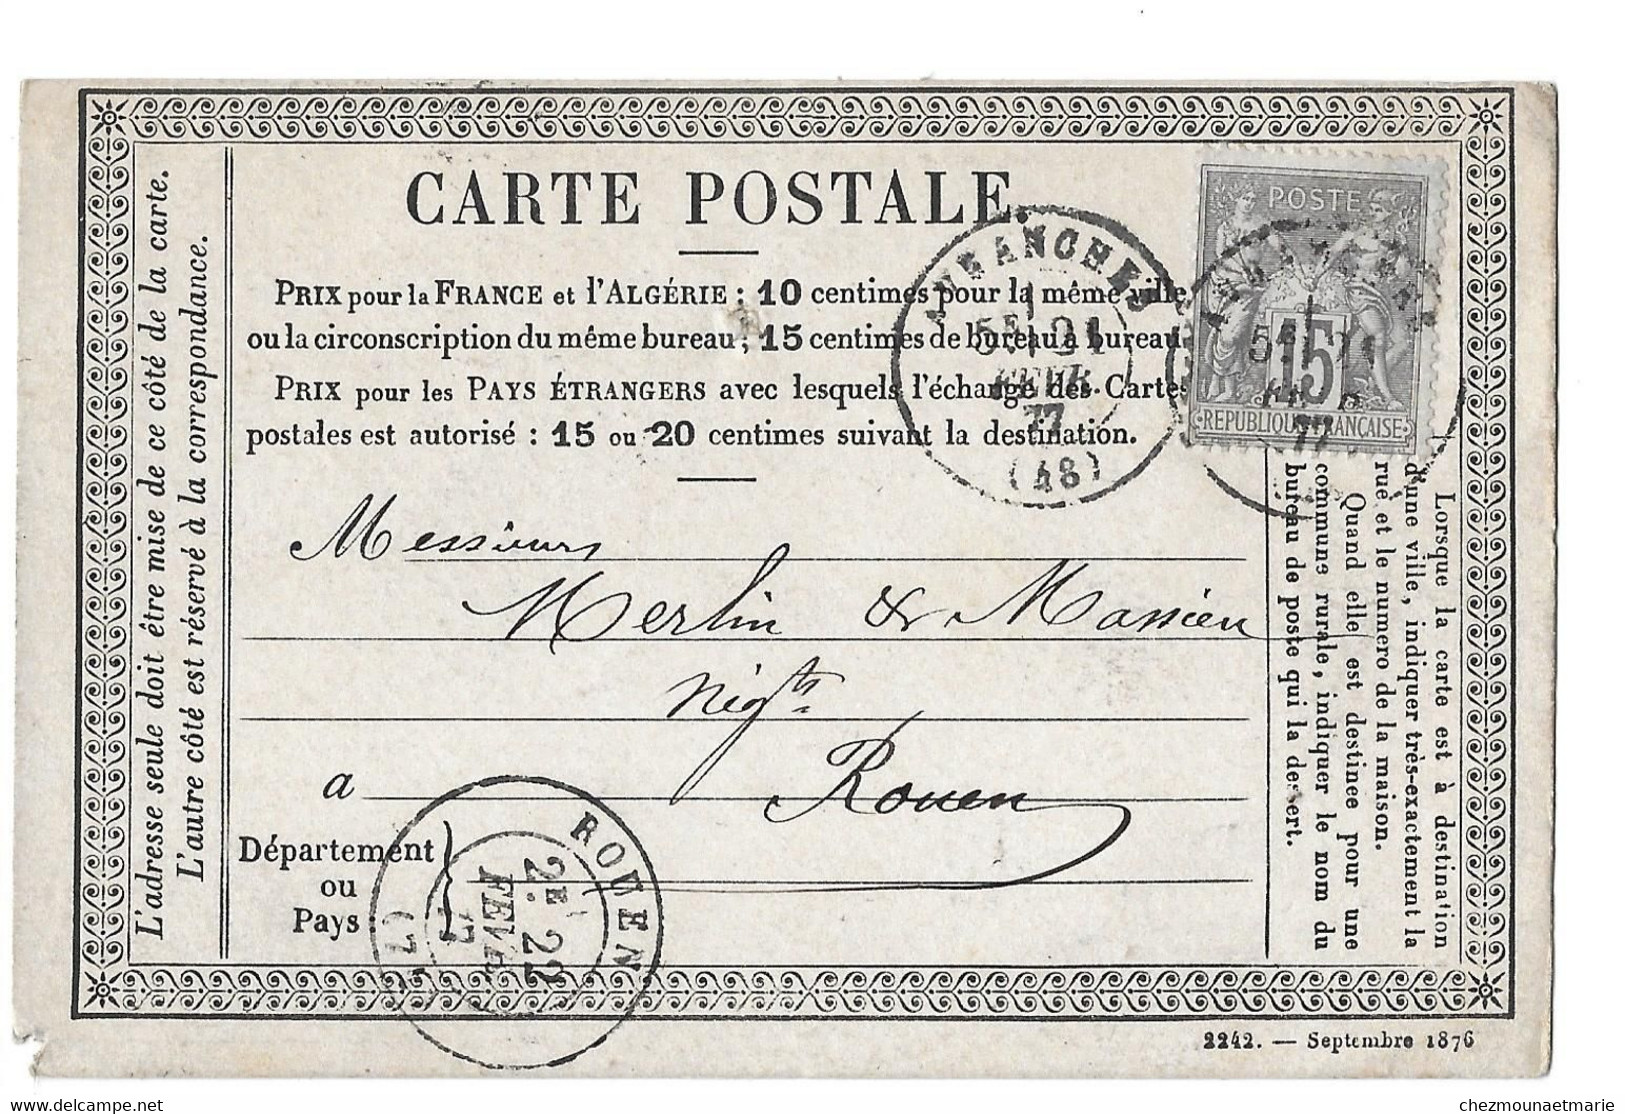 CARTE POSTALE.
PRIX pour la FRANCE et l'ALGÉRIE : 10 centimes pour la même ville
ou la circonscription du même bureau ; 15 centimes de bureau à bureau
PRIX pour les PAYS ÉTRANGERS avec lesquels l'échange des Cartes
postales est autorisé : 15 ou 20 centimes suivant la destination.
Messieurs
Merlin & Massieu
Négts
a Rouen
Département
ou
Pays
L'adresse seule doit être mise de ce côté de la carte.
L'autre côté est réservé à la correspondance.
Lorsque la carte est à destination
d'une ville, indiquer très-exactement la
rue et le numero de la maison.
Quand elle est destinee pour une
commune rurale, indiquer le nom du
bureau de poste qui la dessert.
POSTE
15
REPUBLIQUE FRANCAISE
AVRANCHES
5E 21
FEVR
77
(48)
5E
77
ROUEN
2E 22
FEVR
77
2242. — Septembre 1876
delcampe.net
chezmounaetmarie